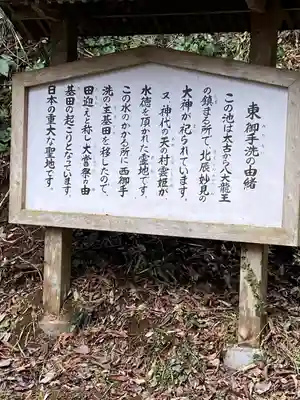 東御手洗の由緒
この池は太古から八大龍王
の鎮まる所で、北辰妙見の
大神が祀られています。
又、神代の天の村雲姫が
水徳を頂かれた霊地です。
この水のかかる所に西御手
洗の主基田を移したので、
田迎えと称し、大嘗祭の由
基田の起こりとなっています。
日本の重大な聖地です。